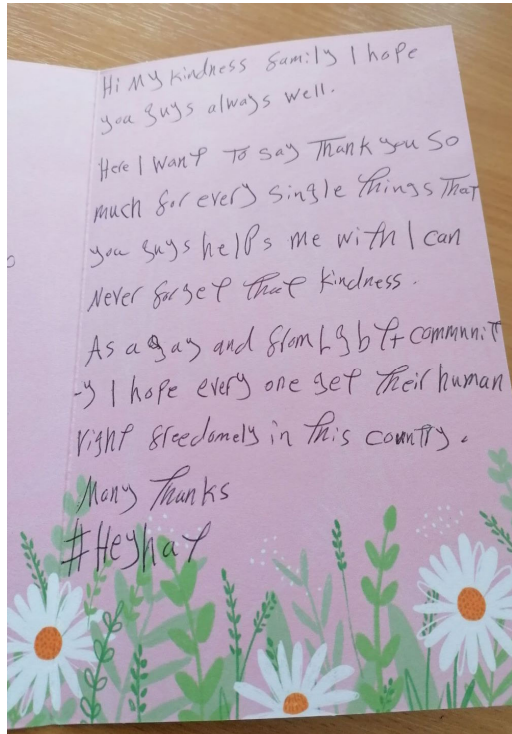 Hi My kindness family I hope
you guys always well.
Here I want To say Thank you So
much for every single Things That
you guys helps me with I can
Never forget that kindness.
As a gay and from Lgbt+ communit
-y I hope every one get Their human
right freedomely in This country.
Many Thanks
#Heyhat